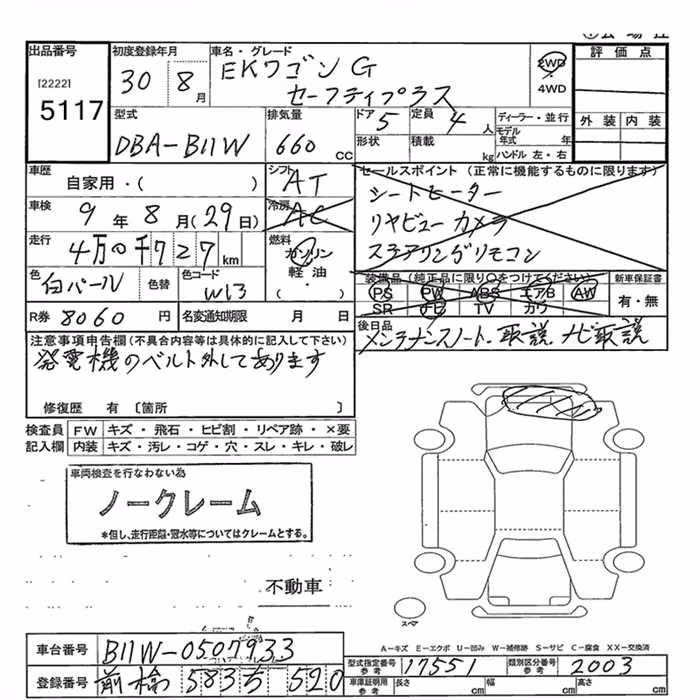 出品番号
[2222]
5117
初度登録年月
30 8月
車名・グレード
EKワゴン G
セーフティプラス
2WD
・
4WD
評価点
外装 内装
型式
DBA-B11W
排気量
660 CC
ドア 5
形状
定員 4人
積載 kg
ディーラー・並行
モデル年式 年
ハンドル 左・右
車歴
自家用・( )
シフト
AT
セールスポイント (正常に機能するものに限ります)
シートヒーター
リヤビューカメラ
ステアリングリモコン
車検
9年8月(29日)
冷房
AC
走行
4万0千727km
燃料
ガソリン
軽油
・( )
色
白パール
色替
色コード
W13
装備品 (純正品に限り○をつけてください)
PS PW ABS エアB AW
SR ナビ TV カワ
新車保証書
有・無
R券 8060円
名変通知期限 月 日
後日品
メンテナンスノート.取説 ナビ取説
注意事項申告欄(不具合内容等は具体的に記入して下さい)
発電機のベルト外してあります
修復歴 有 〔箇所 〕
検査員
記入欄
FW キズ・飛石・ヒビ割・リペア跡・×要
内装 キズ・汚レ・コゲ・穴・スレ・キレ・破レ
車両検査を行なわない為
ノークレーム
*但し、走行距離・冠水等についてはクレームとする。
不動車
スペア
A-キズ E-エクボ U-凹み W-補修跡 S-サビ C-腐食 XX-交換済
車台番号 B11W-0507933
登録番号 前橋 583 520
型式指定番号
参考
17551
類別区分番号
参考
2003
車庫証明用
参考
長さ cm
幅 cm
高さ cm